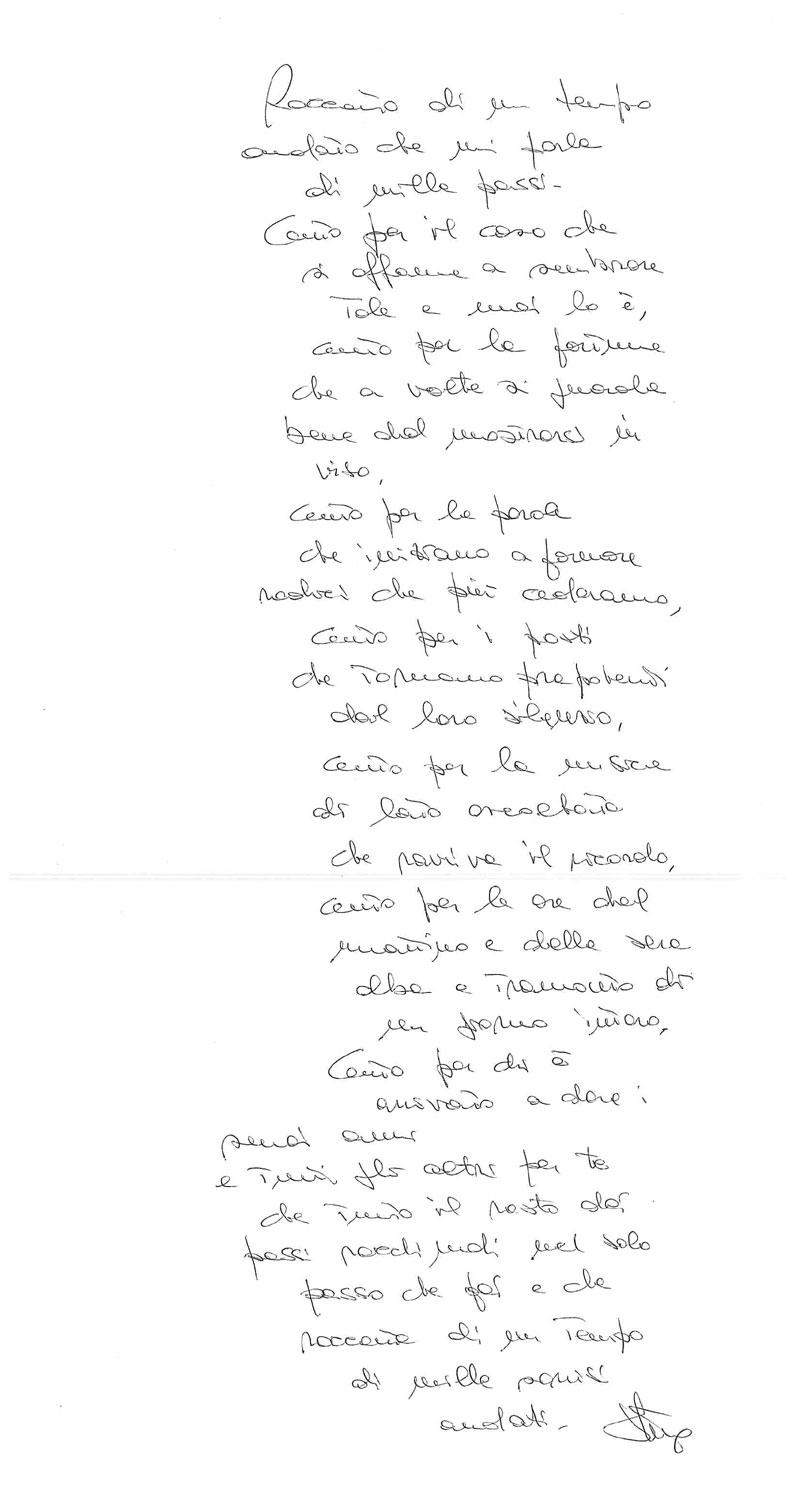 Racconto di un tempo
andato che mi parla
di mille passi.
Cento per il caso che
si affanna a sembrare
tale e mai lo è,
cento per la fortuna
che a volte si guarda
bene dal mostrarsi in
viso,
cento per le parole
che iniziano a formare
che più cadranno,
cento per i posti
che tornano prepotenti
dal loro silenzio,
cento per la musica
di lato ascoltata
che ravviva il ricordo,
cento per le ore del
mattino e della sera
alba e tramonto di
un giorno intero,
Cento per chi è
arrivato a dare i
anni
e tutti gli altri per te
che tutto il resto dei
passi racchiudi nel solo
passo che fai e che
racconta di un tempo
di mille
andati.